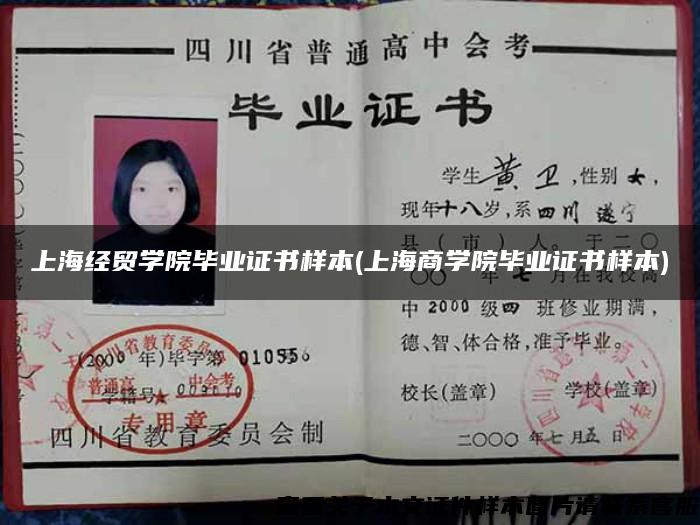 四川省普通高中会考
毕业证书
学生黄卫,性别女,
现年十八岁,系四川遂宁
县(市)人。于二〇
〇〇年七月在我校高
中2000级四班修业期满,
德、智、体合格,准予毕业。
校长(盖章) 学校(盖章)
二〇〇〇年七月五日
上海经贸学院毕业证书样本(上海商学院毕业证书样本)
(2000年)毕字第
学籍号
四川省教育委员会
普通高 中会考
专用章
四川省教育委员会制